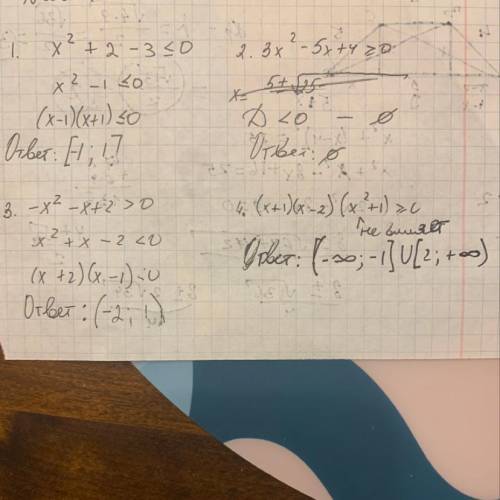 1. x² + 2 - 3 ≤ 0
x² - 1 ≤ 0
(x-1)(x+1) ≤ 0
Ответ: [-1; 1]
2. 3x² - 5x + 4 ≥ 0
x = 5 ± √25
D < 0 — ∅
Ответ: ∅
3. -x² - x + 2 > 0
x² + x - 2 < 0
(x+2)(x-1) < 0
Ответ: (-2; 1)
4. (x+1)(x-2)(x²+1) ≥ 0
не влияет
Ответ: [-∞; -1] U [2; +∞)